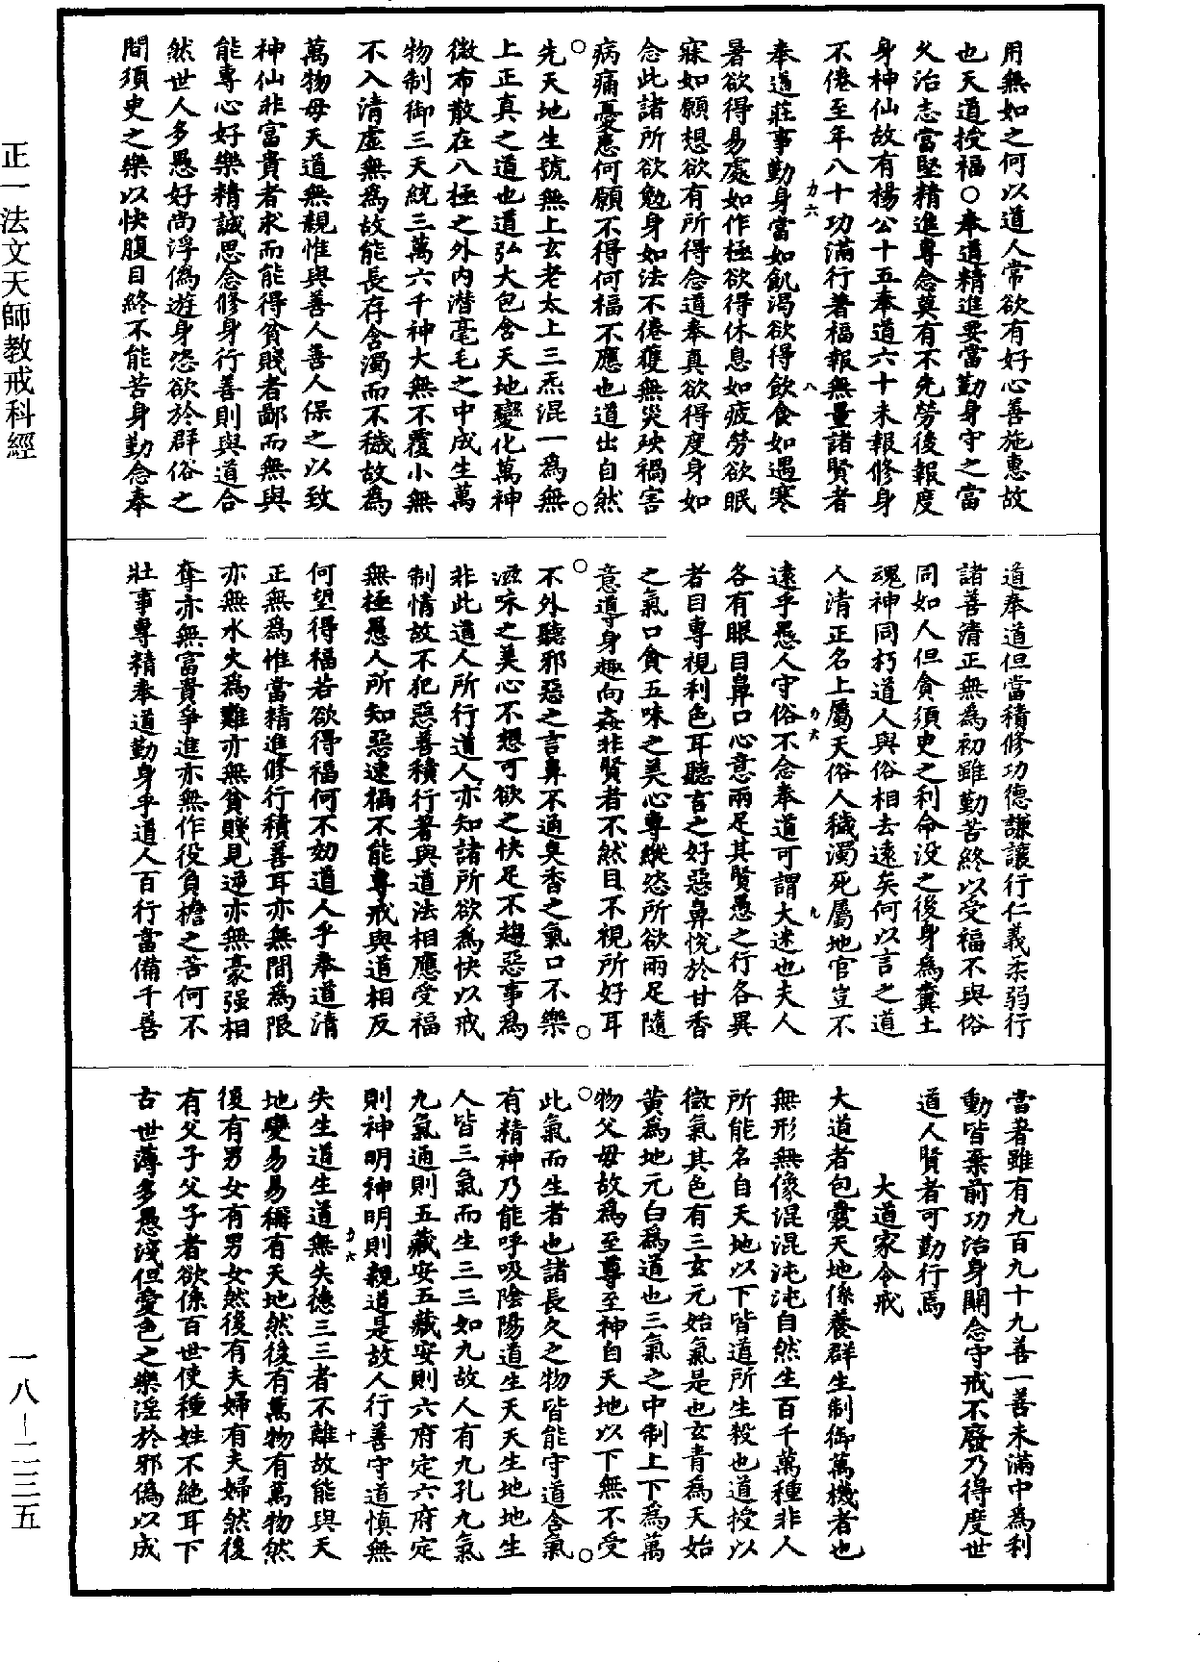 用無如之何以道人常欲有好心善施惠故
也天道授福○奉道精進要當勤身守之當
久治志當堅精進專念莫有不先勞後報度
身神仙故有楊公十五奉道六十未報修身
不倦至年八十功滿行著福報無量諸賢者
力六
八
奉道莊事勤身當如飢渴欲得飲食如遇寒
暑欲得易處如作極欲得休息如疲勞欲眠
寐如願想欲有所得念道奉真欲得度身如
念此諸所欲勉身如法不倦獲無災殃禍害
病痛憂恚何願不得何福不應也道出自然
先天地生號無上玄老太上三炁混一為無
上正真之道也道弘大包含天地變化萬神
微布散在八極之外內潛毫毛之中成生萬
物制御三天統三萬六千神大無不覆小無
不入清虛無為故能長存含濁而不穢故為
萬物母天道無親惟與善人善人保之以致
神仙非富貴者求而能得貧賤者鄙而無與
能專心好樂精誠思念修身行善則與道合
然世人多愚好尚浮偽遊身恣欲於群俗之
間須臾之樂以快腹目終不能苦身勤念奉
道奉道但當積修功德謙讓行仁義柔弱行
諸善清正無為初雖勤苦終以受福不與俗
同如人但貪須臾之利命沒之後身為糞土
魂神同朽道人與俗相去遠矣何以言之道
人清正名上屬天俗人穢濁死屬地官豈不
力六
九
遠乎愚人守俗不念奉道可謂大迷也夫人
各有眼目鼻口心意兩足其賢愚之行各異
者目專視利色耳聽言之好惡鼻悅於甘香
之氣口貪五味之美心專縱恣所欲兩足隨
意導身趣向姦非賢者不然目不視所好耳
不外聽邪惡之言鼻不通臭香之氣口不樂
滋味之美心不想可欲之快足不趨惡事為
非此道人所行道人亦知諸所欲為快以戒
制情故不犯惡善積行著與道法相應受福
無極愚人所知惡逮禍不能專戒與道相反
何望得福若欲得福何不如道人乎奉道清
正無為惟當精進修行積善耳亦無間為限
亦無水火為難亦無貧賤見逆亦無豪强相
奪亦無富貴爭進亦無作役負檐之苦何不
壯事專精奉道勤身乎道人百行當備千善
當著雖有九百九十九善一善未滿中為利
動皆棄前功治身關念守戒不廢乃得度世
道人賢者可勤行焉
大道家令戒
大道者包囊天地係養群生制御萬機者也
無形無像混混沌沌自然生百千萬種非人
所能名自天地以下皆道所生殺也道授以
微氣其色有三玄元始氣是也玄青為天始
黃為地元白為道也三氣之中制上下為萬
物父母故為至尊至神自天地以下無不受
此氣而生者也諸長久之物皆能守道含氣
有精神乃能呼吸陰陽道生天天生地地生
人皆三氣而生三三如九故人有九孔九氣
九氣通則五藏安五藏安則六府定六府定
則神明神明則親道是故人行善守道慎無
力六
十
失生道生道無失德三三者不離故能與天
地變易易稱有天地然後有萬物有萬物然
後有男女有男女然後有夫婦有夫婦然後
有父子父子者欲係百世使種姓不絕耳下
古世薄多愚淺但愛色之樂淫於邪偽以成
正一法文天師教戒科經
一八－二三五